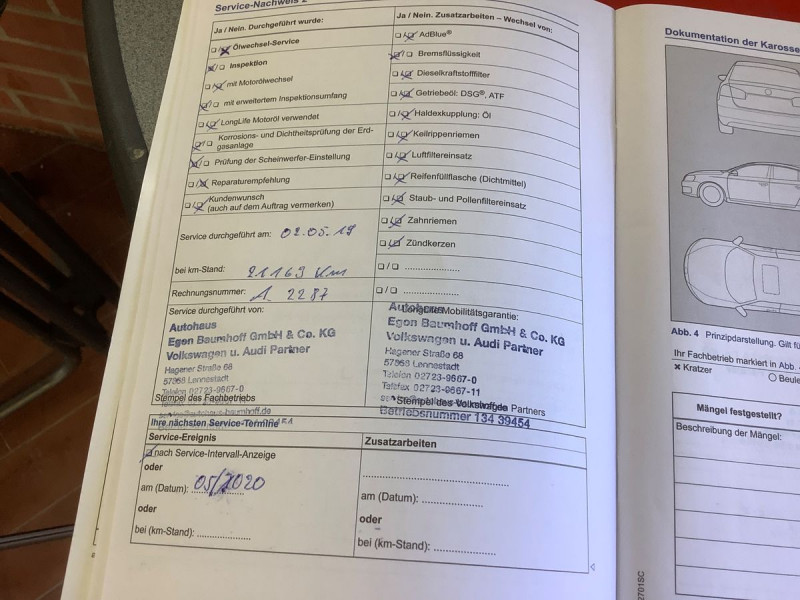 Service-Nachweis 2
Ja / Nein. Durchgeführt wurde:
Ölwechsel-Service
Inspektion
mit Motorölwechsel
mit erweitertem Inspektionsumfang
LongLife Motoröl verwendet
Korrosions- und Dichtheitsprüfung der Erd-
gasanlage
Prüfung der Scheinwerfer-Einstellung
Reparaturempfehlung
Kundenwunsch
(auch auf dem Auftrag vermerken)
Service durchgeführt am: 02.05.19
bei km-Stand: 21169 Km
Rechnungsnummer: 1 2287
Service durchgeführt von:
Autohaus
Egon Baumhoff GmbH & Co. KG
Volkswagen u. Audi Partner
Hagener Straße 68
57368 Lennestadt
Telefon 02723-9667-0
Telefax 02723-9667-11
Stempel des Fachbetriebs
Ja / Nein. Zusatzarbeiten – Wechsel von:
AdBlue®
Bremsflüssigkeit
Dieselkraftstofffilter
Getriebeöl: DSG®, ATF
Haldexkupplung: Öl
Keilrippenriemen
Luftfiltereinsatz
Reifenfüllflasche (Dichtmittel)
Staub- und Pollenfiltereinsatz
Zahnriemen
Zündkerzen
/ ....................
/ ....................
LongLife Mobilitätsgarantie:
Autohaus
Egon Baumhoff GmbH & Co. KG
Volkswagen u. Audi Partner
Hagener Straße 68
57368 Lennestadt
Telefon 02723-9667-0
Telefax 02723-9667-11
Stempel des Volkswagen Partners
Betriebsnummer 134 39454
Ihre nächsten Service-Termine
Service-Ereignis
nach Service-Intervall-Anzeige
oder
am (Datum): 05/2020
oder
bei (km-Stand): ....................
Zusatzarbeiten
am (Datum): ....................
oder
bei (km-Stand): ....................
Dokumentation der Karosse
Abb. 4 Prinzipdarstellung. Gilt fü
Ihr Fachbetrieb markiert in Abb. 4
× Kratzer
Beule
Mängel festgestellt?
Beschreibung der Mängel: